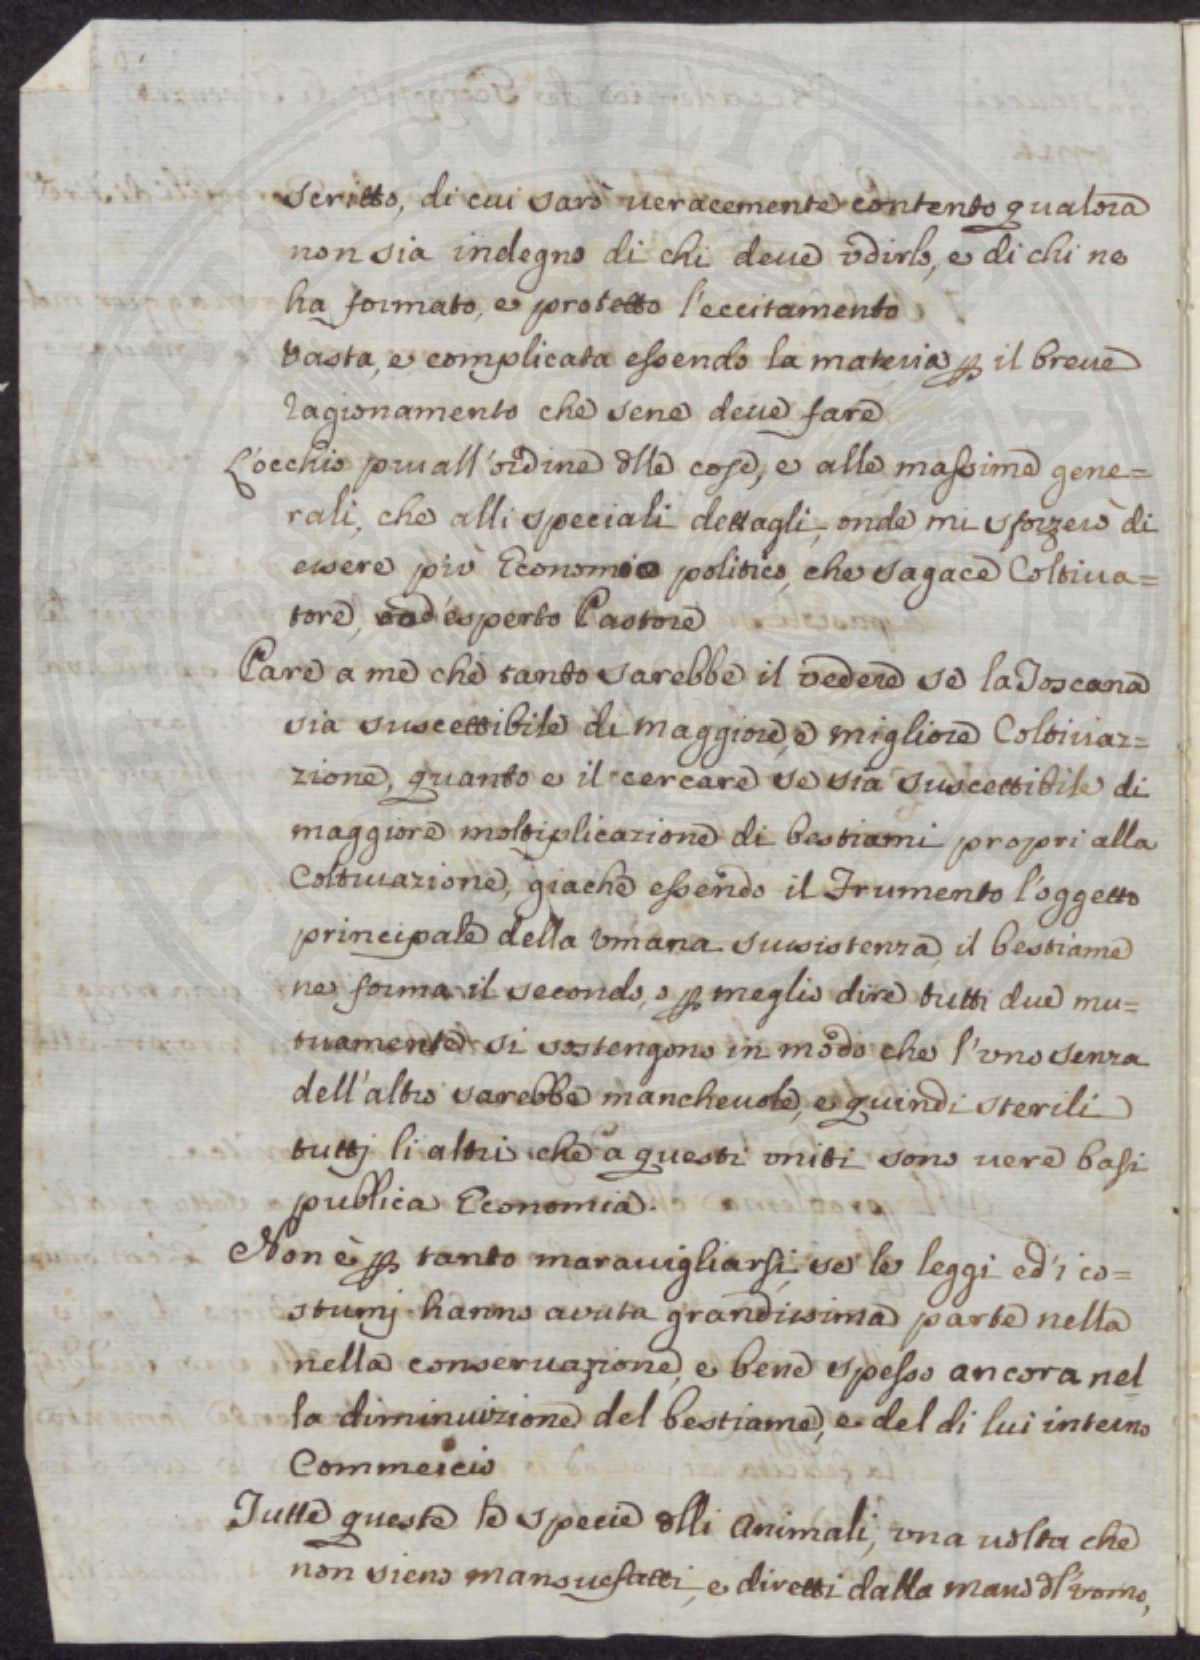 scritto, di cui sarò veracemente contento qualora
non sia indegno di chi deve vdirlo, e di chi ne
ha formato, e protetto l'eccitamento
Vasta, e complicata essendo la materia ꝑ il breve
ragionamento che sene deve fare
L'occhio più all'ordine dlle cose, e alle massime gene=
rali, che alli speciali dettagli, onde mi sforzerò di
essere più Economico politico, che sagace Coltiva=
tore, od esperto Pastore
Pare a me che tanto sarebbe il vedere se la Toscana
sia suscettibile di maggiore, e migliore Coltivaz=
zione, quanto e il cercare se sia suscettibile di
maggiore moltiplicazione di bestiami propri alla
Coltivazione, giache essendo il Frumento l'oggetto
principale della vmana sussistenza, il bestiame
ne forma il secondo, o ꝑ meglio dire tutti due mu=
tuamente si sostengono in modo che l'vno senza
dell'altro sarebbe manchevole, e quindi sterili
tuttj li altri che a questi vniti sono vere basi
publica Economia.
Non è ꝑ tanto maravigliarsi, se le leggi ed'i co=
stumj hanno avuta grandissima parte nella
nella conservazione, e bene spesso ancora nel=
la diminuizione del bestiame, e del di lui interno
Commercio
Tutte queste le specie dlli Animali, vna volta che
non sieno mansuefatti, e diretti dalla mano dl'vomo,